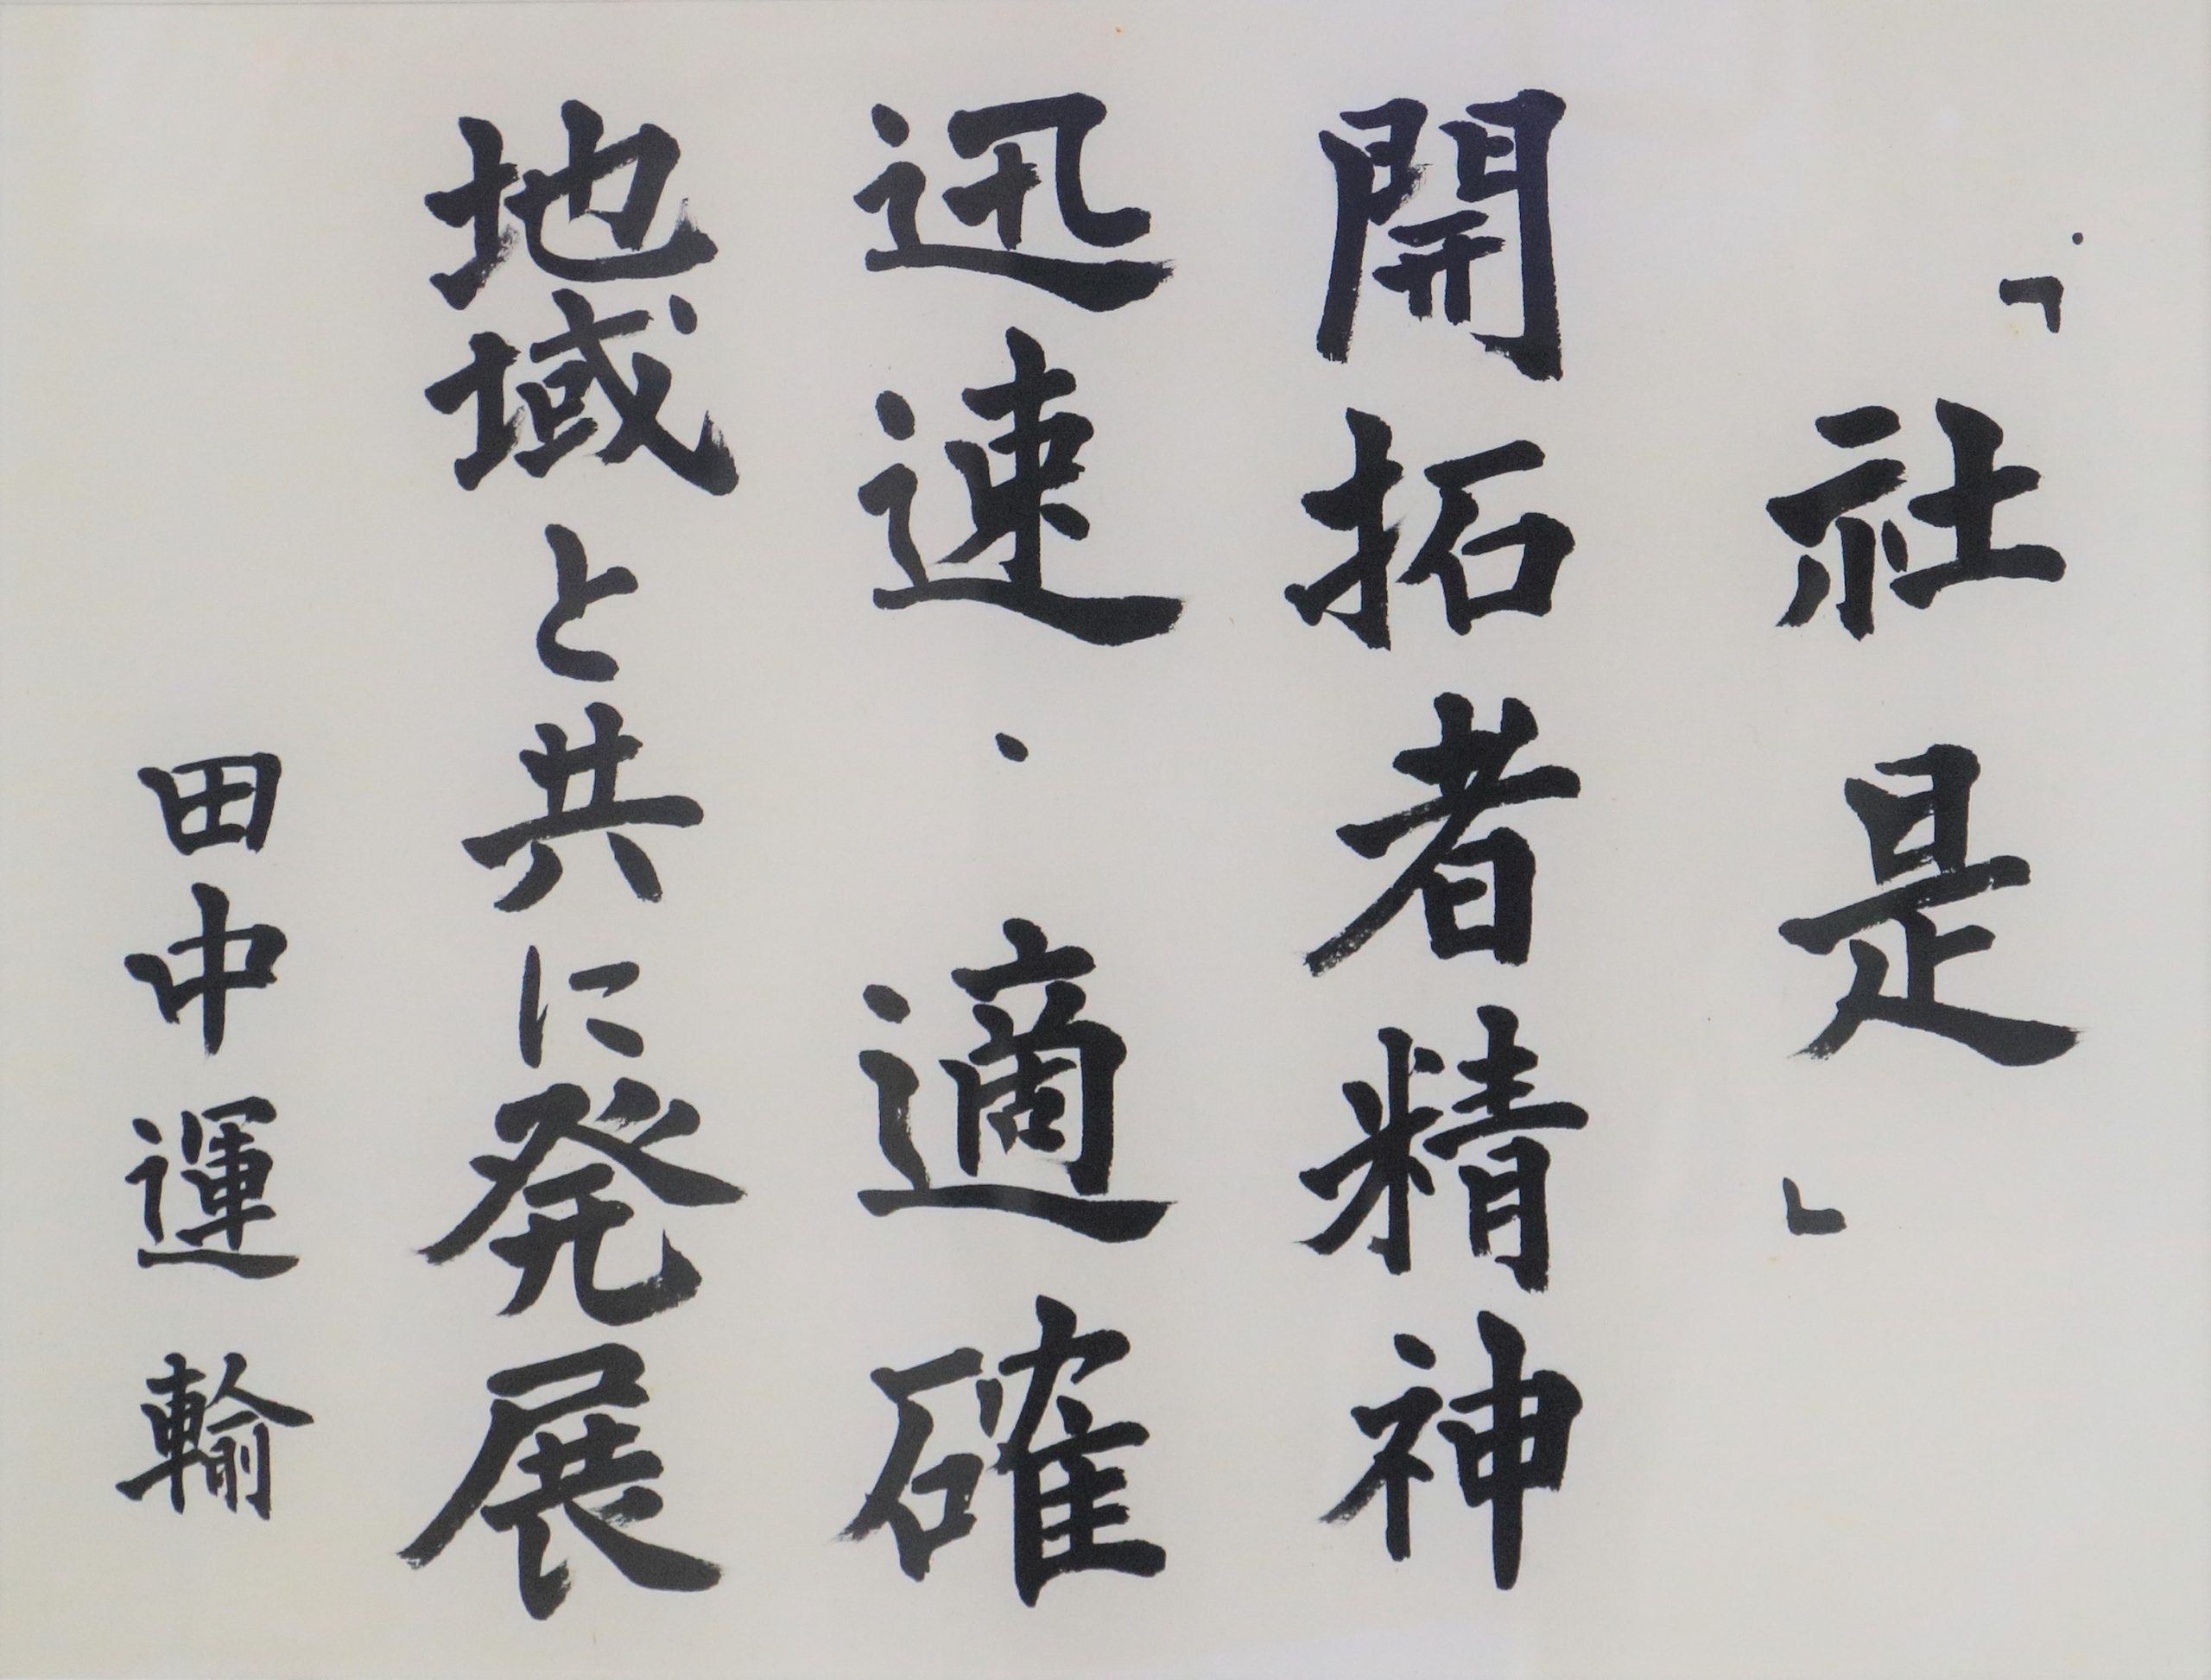 「社是」
開拓者精神
迅速・適確
地域と共に発展
田中運輸